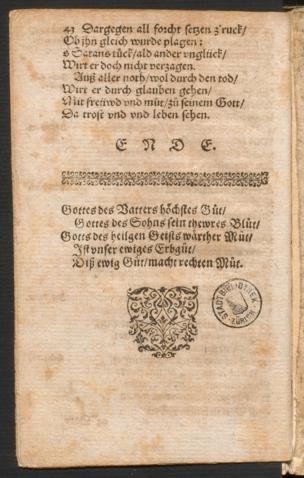 41 Dargegen all forcht setzen z'ruck/
Ob jhn gleich wurde plagen:
s Satans tück/ald ander vnglück/
Wirt er doch nicht verzagen.
Auß aller noth/wol durch den tod/
Wirt er durch glauben gehen/
Mit freüwd vnd müt/zü seinem Gott/
Da trost vnd vnd leben sehen.
E N D E.
Gottes des Vatters höchstes Güt/
Gottes des Sohns sein thewres Blüt/
Gotts des heilgen Geists wärther Müt/
Ist vnser ewiges Erbgüt/
Diß ewig Güt/macht rechten Müt.
STADTBIBLIOTHEK
ZÜRICH